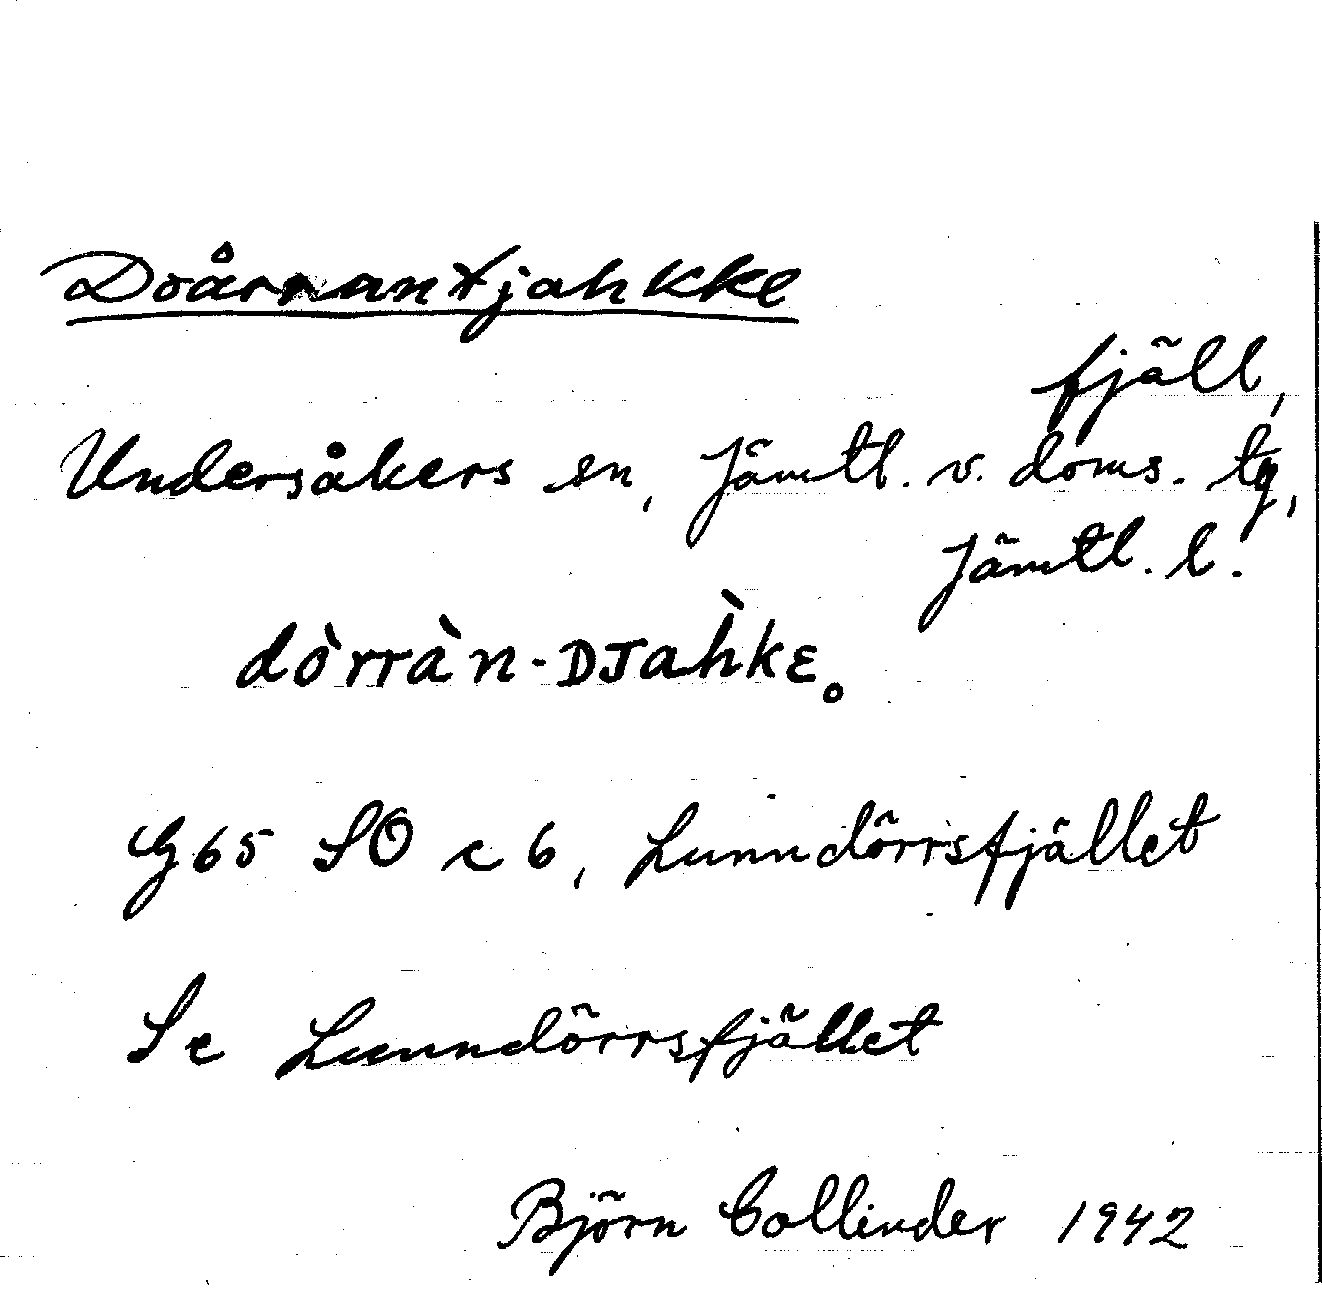 Doårrantjahkke
fjäll,
Undersåkers sn, Jämtl. v. doms. tg,
Jämtl. l.
dòrràn-DJah̀kE.
G65 SO c 6, Lunndörrsfjället
Se Lunndörrsfjället
Björn Collinder 1942